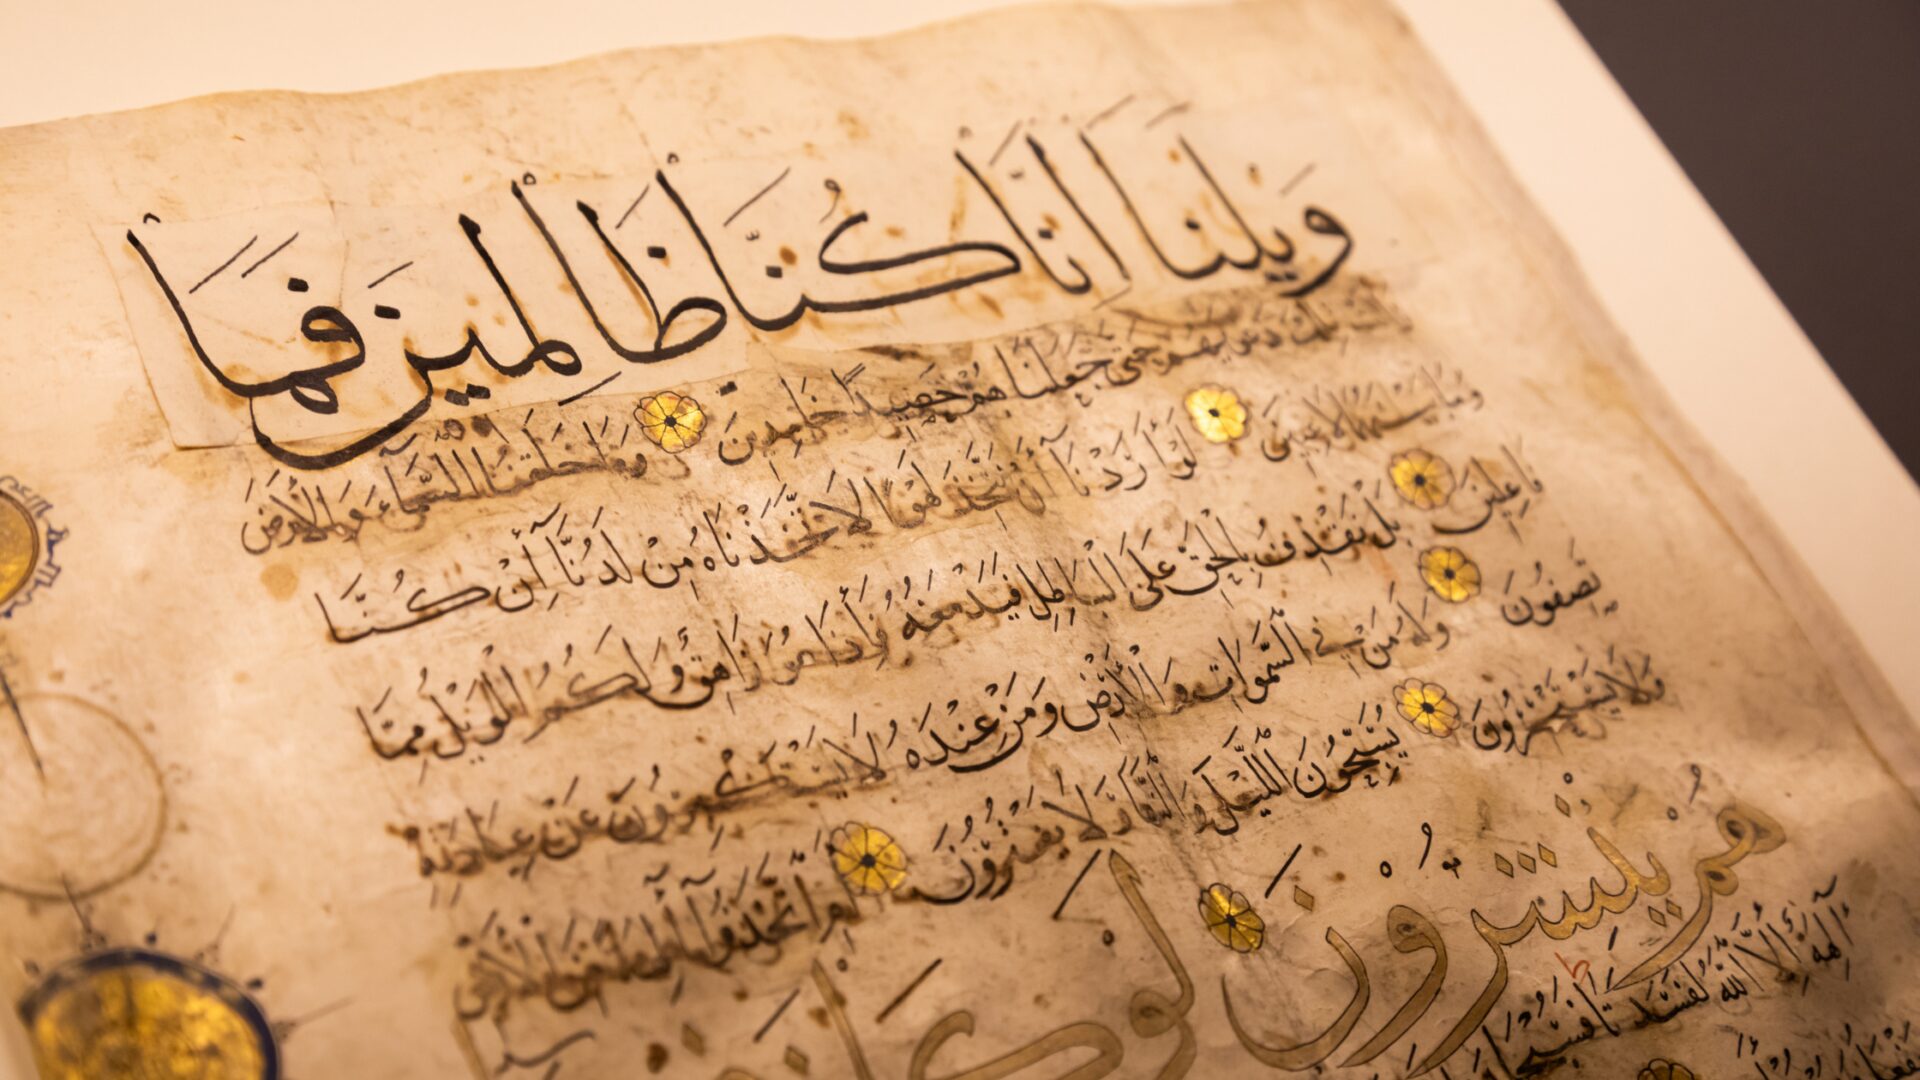 وَيْلَنَا اِنَّا كُنَّا ظَالِمِينَ فَمَا
تِلْكَ دَعْوَيهُمْ حَتَّى جَعَلْنَاهُمْ حَصِيدًا خَامِدِينَ وَمَا خَلَقْنَا السَّمَآءَ وَالْأَرْضَ
وَمَا بَيْنَهُمَا لَاعِبِينَ لَوْ أَرَدْنَآ أَنْ نَتَّخِذَ لَهْوًا لَاتَّخَذْنَاهُ مِنْ لَدُنَّآ إِنْ كُنَّا
فَاعِلِينَ بَلْ نَقْذِفُ بِالْحَقِّ عَلَى الْبَاطِلِ فَيَدْمَغُهُ فَإِذَا هُوَ زَاهِقٌ وَلَكُمُ الْوَيْلُ مِمَّا
تَصِفُونَ وَلَهُ مَنْ فِي السَّمَوَاتِ وَالْأَرْضِ وَمَنْ عِنْدَهُ لَا يَسْتَكْبِرُونَ عَنْ عِبَادَتِهِ
وَلَا يَسْتَحْسِرُونَ يُسَبِّحُونَ اللَّيْلَ وَالنَّهَارَ لَا يَفْتُرُونَ أَمِ اتَّخَذُوآ آلِهَةً مِنَ الْأَرْضِ
هُمْ يُنْشِرُونَ لَوْ كَانَ
آلِهَةٌ إِلَّا اللَّهُ لَفَسَدَتَا فَسُبْحَانَ